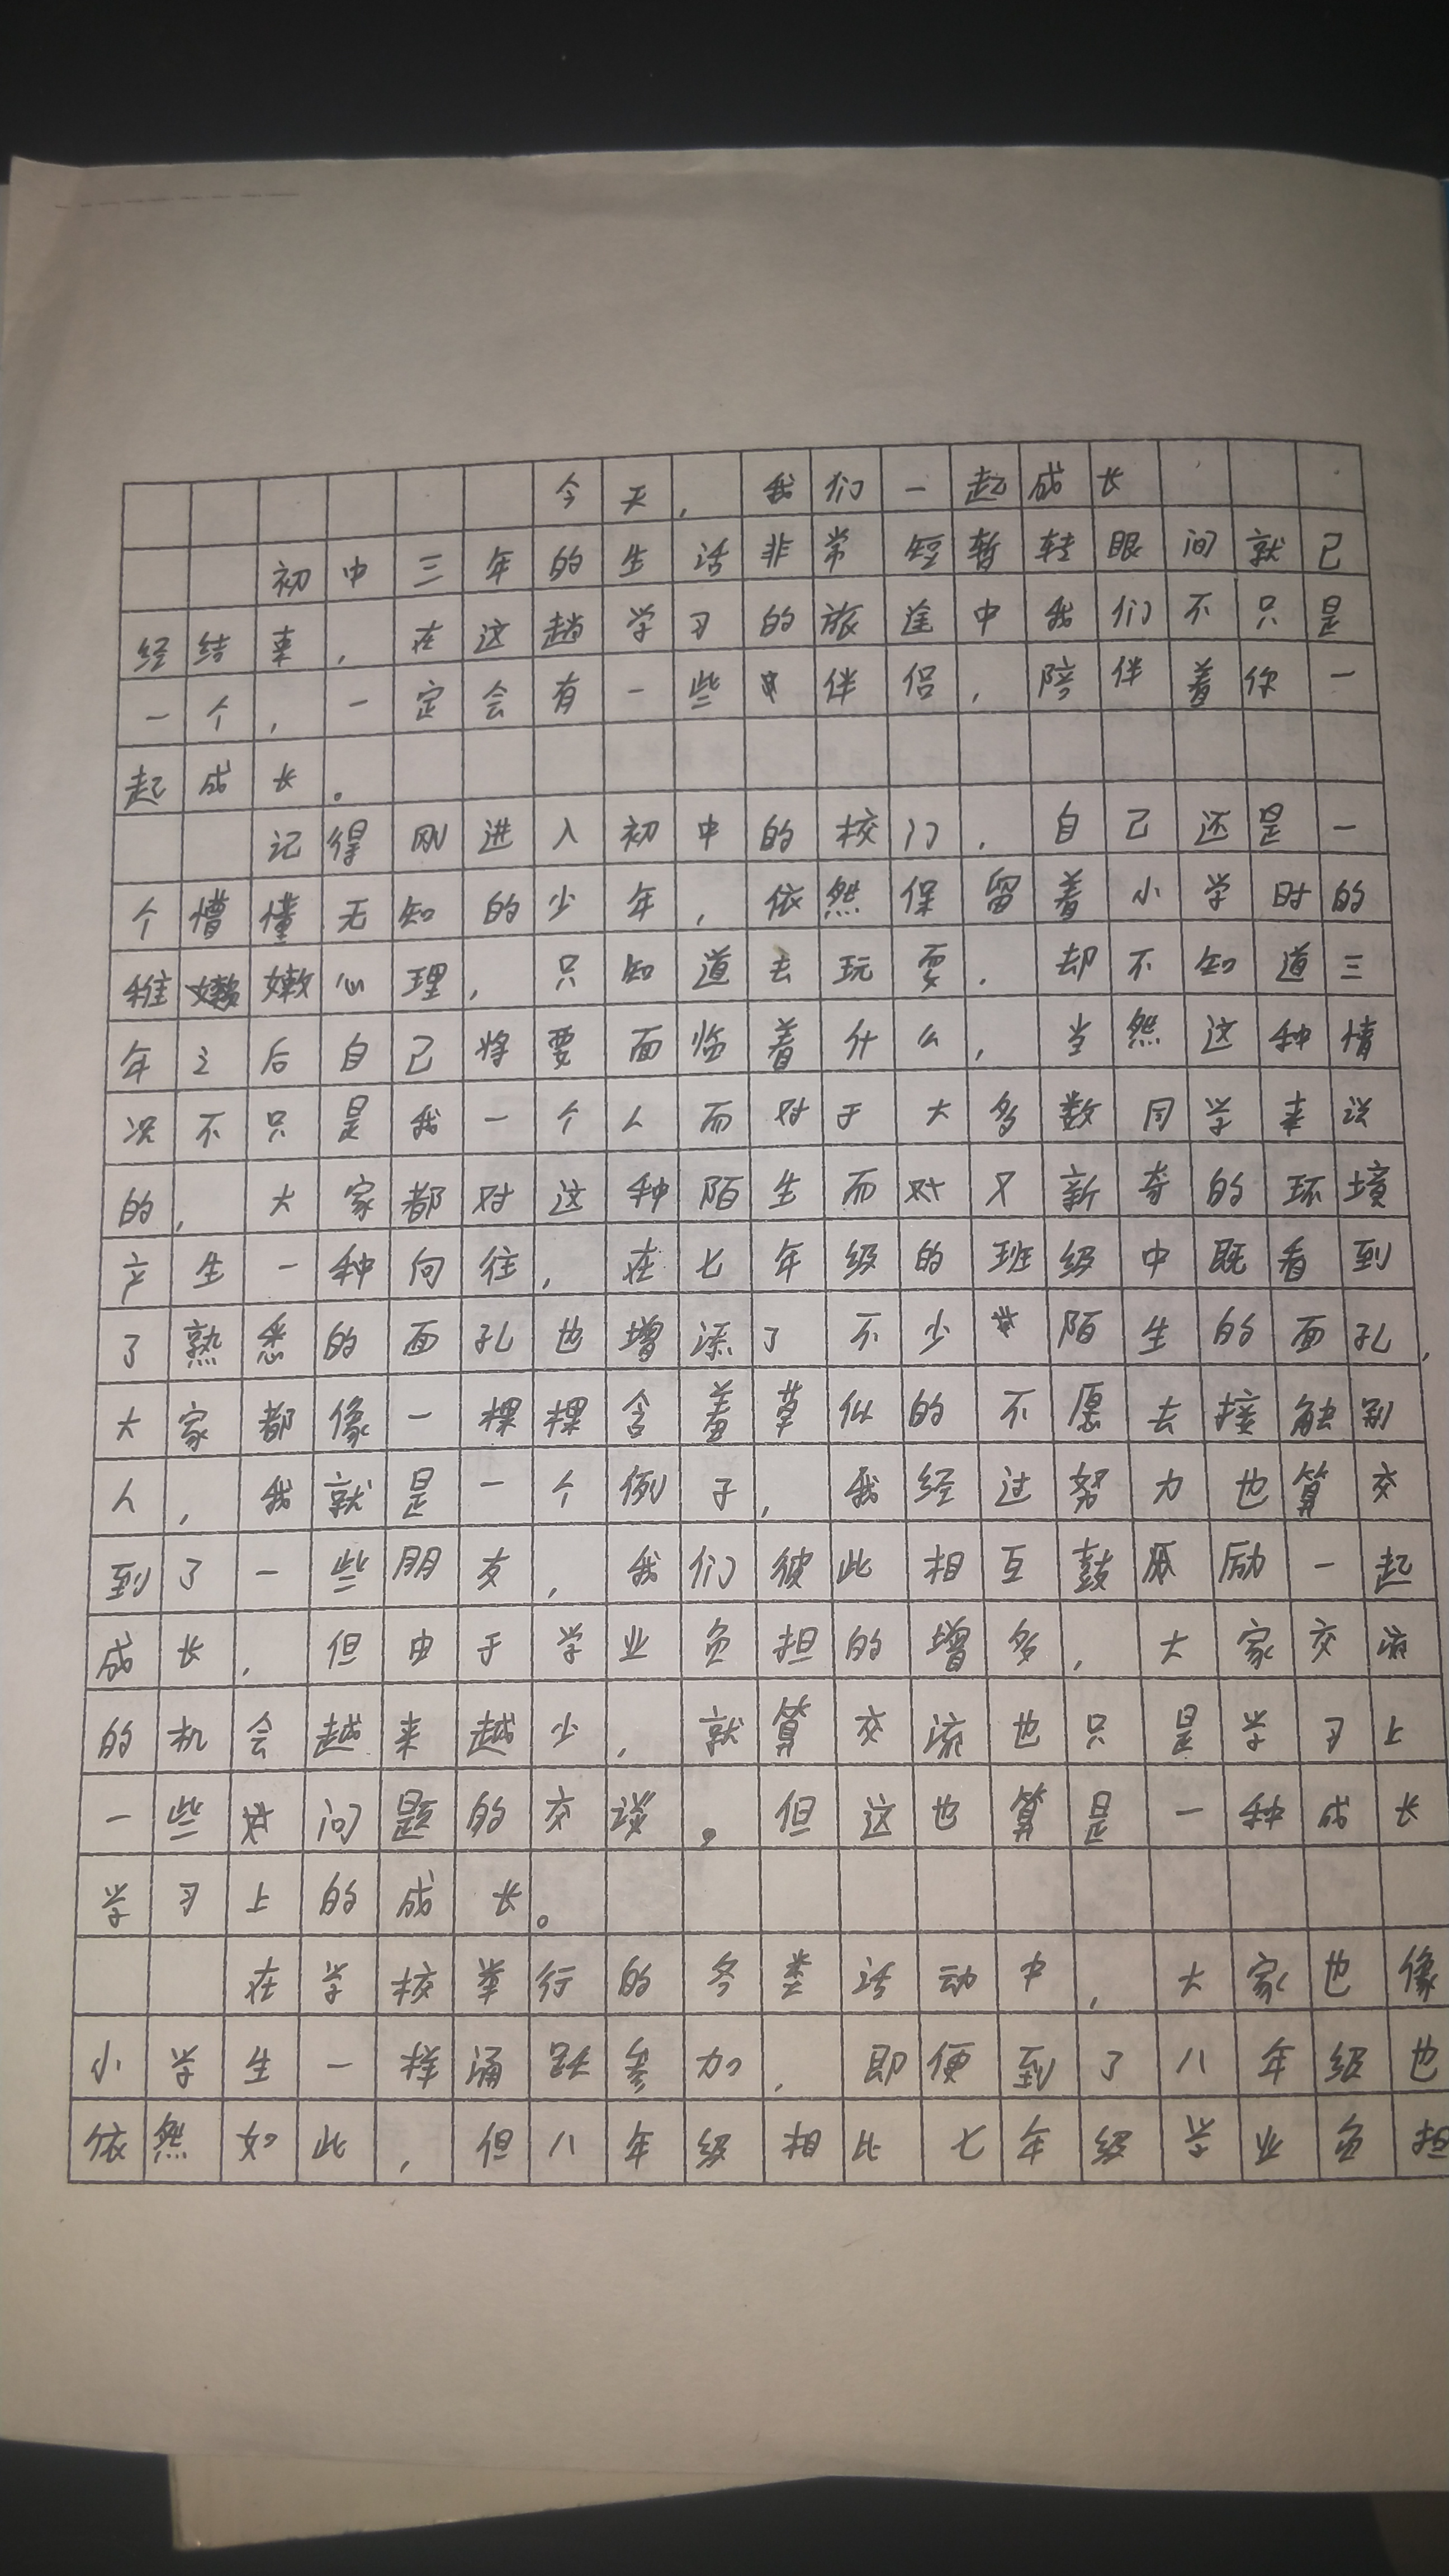 今天,我们一起成长
初中三年的生活非常短暂转眼间就已
经结束,在这趟学习的旅途中我们不只是
一个,一定会有一些伴侣,陪伴着你一
起成长。
记得刚进入初中的校门,自己还是一
个懵懂无知的少年,依然保留着小学时的
稚嫩心理,只知道去玩耍,却不知道三
年之后自己将要面临着什么,当然这种情
况不只是我一个人而对于大多数同学来说
的,大家都对这种陌生而对又新奇的环境
产生一种向往,在七年级的班级中既看到
了熟悉的面孔也增添了不少陌生的面孔,
大家都像一棵棵含羞草似的不愿去接触别
人,我就是一个例子,我经过努力也算交
到了一些朋友,我们彼此相互鼓励一起
成长,但由于学业负担的增多,大家交流
的机会越来越少,就算交流也只是学习上
一些问题的交谈。但这也算是一种成长
学习上的成长。
在学校举行的各类活动中,大家也像
小学生一样涌跃参加,即便到了八年级也
依然如此,但八年级相比七年级学业负担